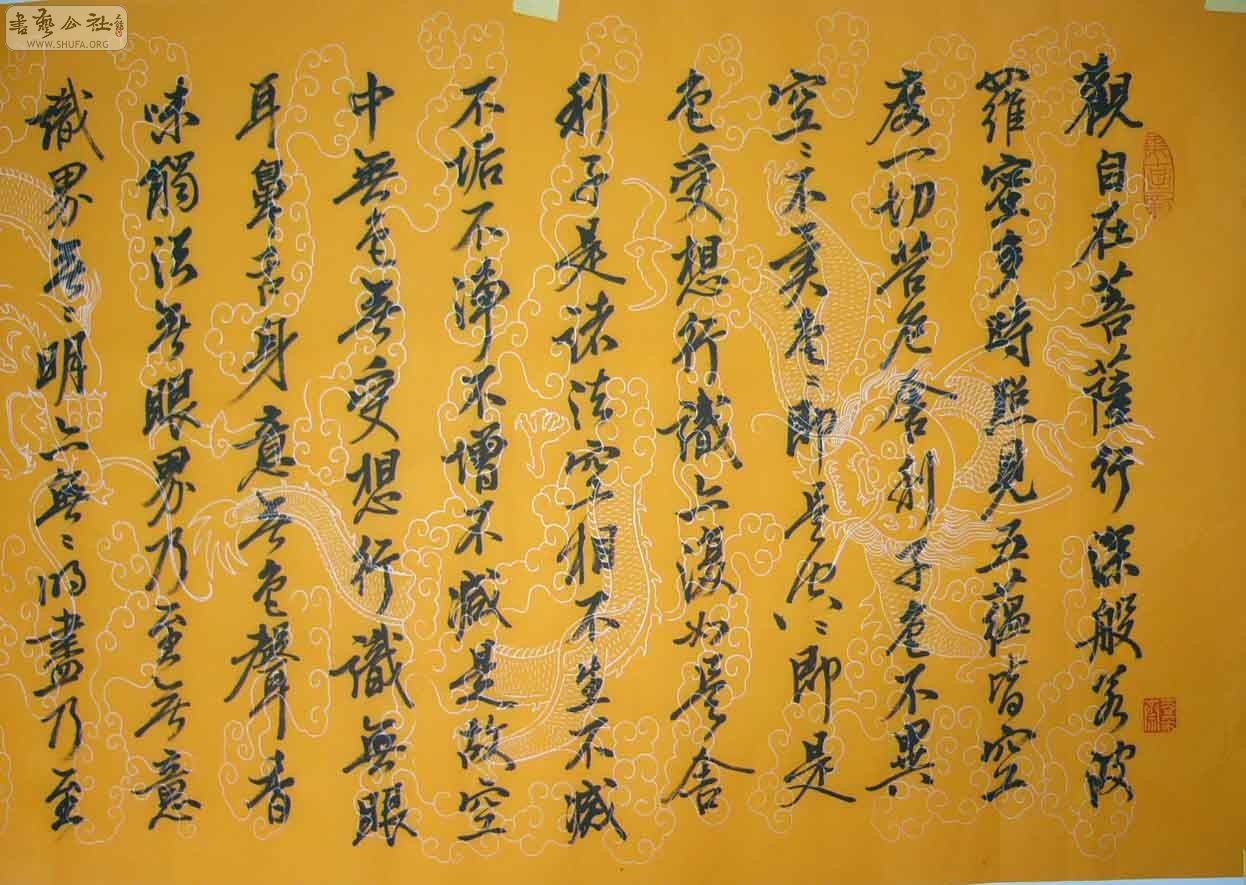 書藝公社
WWW.SHUFA.ORG
觀自在菩薩行深般若波
羅蜜多時照見五蘊皆空
度一切苦厄舍利子色不異
空〻不異色〻即是空〻即是
色受想行識亦復如是舍
利子是諸法空相不生不滅
不垢不淨不增不減是故空
中無色無受想行識無眼
耳鼻舌身意無色聲香
味觸法無眼界乃至無意
識界無〻明亦無〻明盡乃至